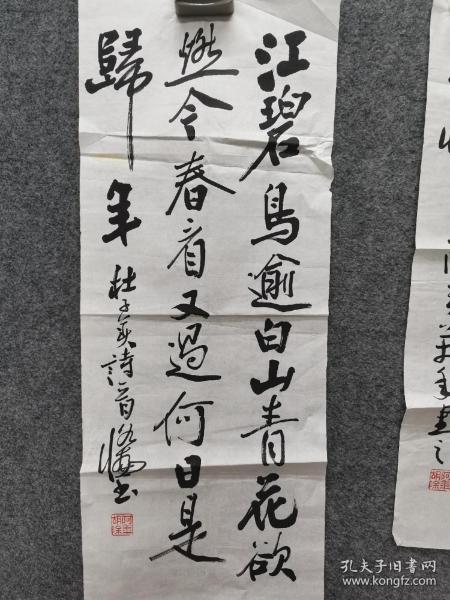 江碧鳥逾白山青花欲
燃今春看又過何日是
歸年
杜子美詩一首
書
孔夫子旧书网
www.kongfz.com